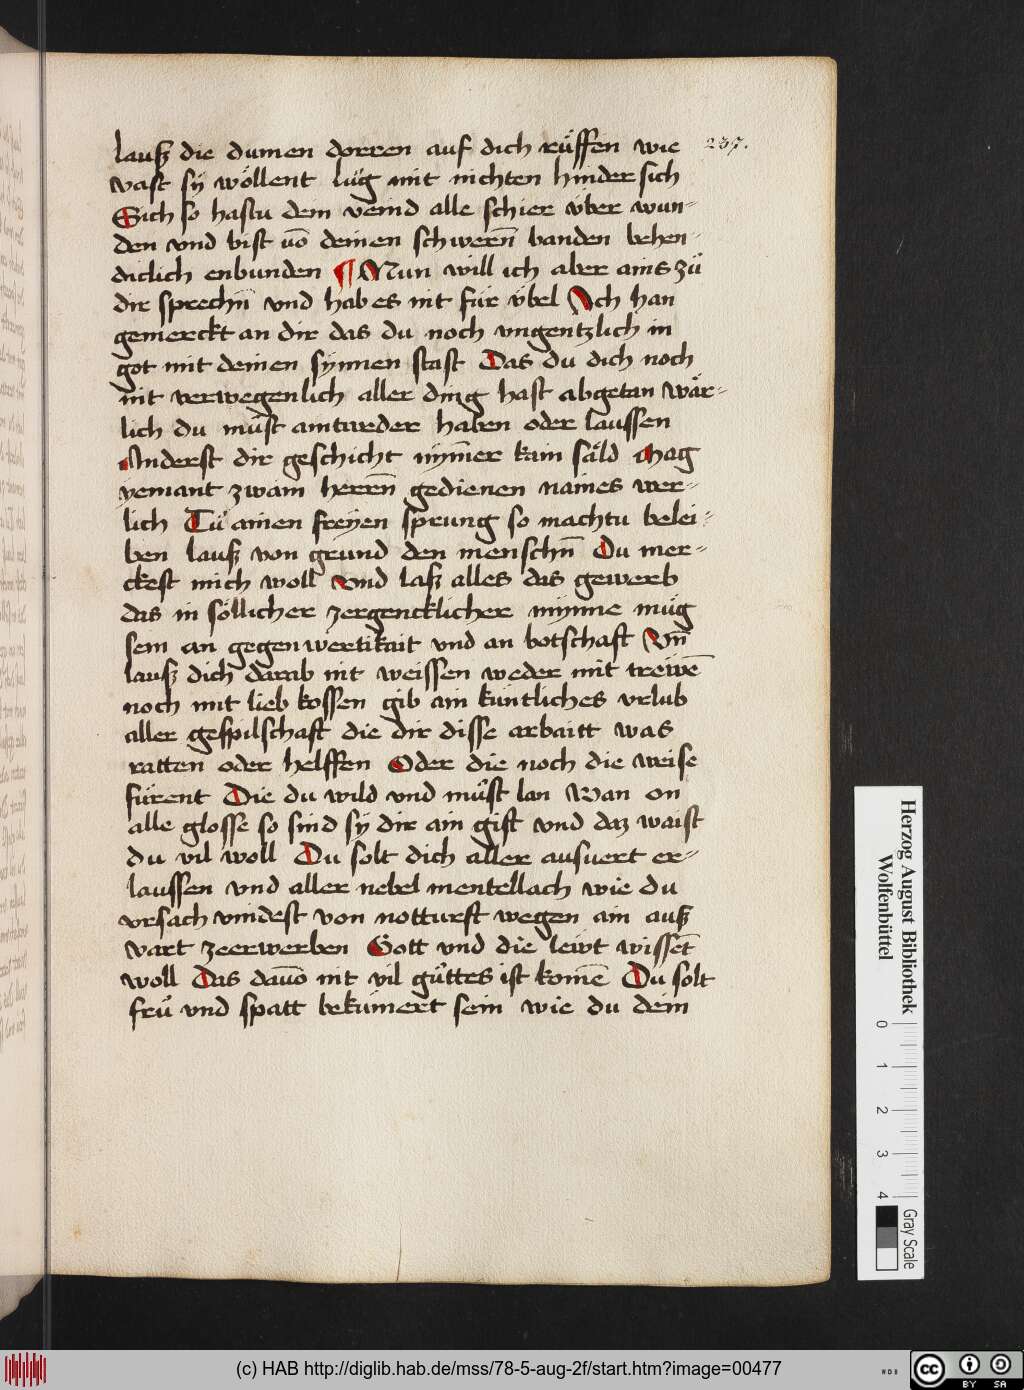 lauſz die dumen dorren auf dich rüͤffen wie 237.
vast sÿ wöllent lüg mit nichten hinder sich
Sich so hastu dem veind alle schier vber wun-
den vnd bist uō deinen schwern̄ banden behen-
diclich enbunden ¶ Nun will ich aber ains zü
dir sprechn̄ vnd hab es nit für v̈bel Ich han
gemerckt an dir das du noch vngentzlich in
got mit deinen synnen stast Das du dich noch
nit verwegenlich aller ding hast abgetan wär-
lich du müst aintweder haben oder laussen
Anderst dir geschicht nÿm̄er kain säld Mag
yemant zwain herrn̄ gedienen naines wer-
lich Tü ainen freyen sprung so machtu belei-
ben lauſz von grund den menschn̄ Du mer-
ckest mich woll vnd laſz alles das gewerb
das in söllicher zergencklicher mynne müg
sein an gegenwertikait vnd an botschaft Vn̄
lauſz dich darab nit weissen weder mit trewē
noch mit lieb kossen gib ain kuntliches vrlub
aller gespilschaft die dir disse arbaitt was
ratten oder helffen Oder die noch die weise
fürent Die du wild vnd müst lan Wan on
alle glosse so sind sÿ dir ain gift vnd daz waist
du vil woll Du solt dich aller ausuert er-
laussen vnd aller nebel mentellach wie du
vrsach vindest von notturft wegen ain auſz
vart zeerwerben Gott vnd die lewt wissēt
woll Das dauō nit vil güttes ist komē Du solt
frü vnd spatt bekümert sein wie du dein
Herzog August Bibliothek
Wolfenbüttel
0 1 2 3 4
Gray Scale
(c) HAB http://diglib.hab.de/mss/78-5-aug-2f/start.htm?image=00477
cc BY SA